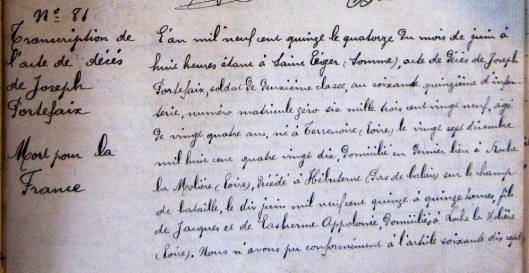 N° 81
Transcription de
l'acte de décès
de Joseph
Portefaix
Mort pour la
France
L'an mil neuf cent quinze le quatorze du mois de juin à
huit heures étant à Saint Léger (Somme), acte de décès de Joseph
Portefaix, soldat de deuxième classe, au soixante quinzième d'infan
terie, numéro matricule zéro six mille trois cent vingt neuf, agé
de vingt quatre ans, né à Terrenoire (Loire), le vingt sept décembre
mil huit cent quatre vingt dix, domicilié en dernier lieu à Roche
la Molière (Loire), décédé à Hébuterne (Pas de Calais) sur le champ
de bataille, le dix juin mil neuf cent quinze à quinze heures, fils
de Jacques et de Appolonie, domiciliés à Roche la Molière
(Loire). Nous n'avons pu conformément à l'article soixante dix sept